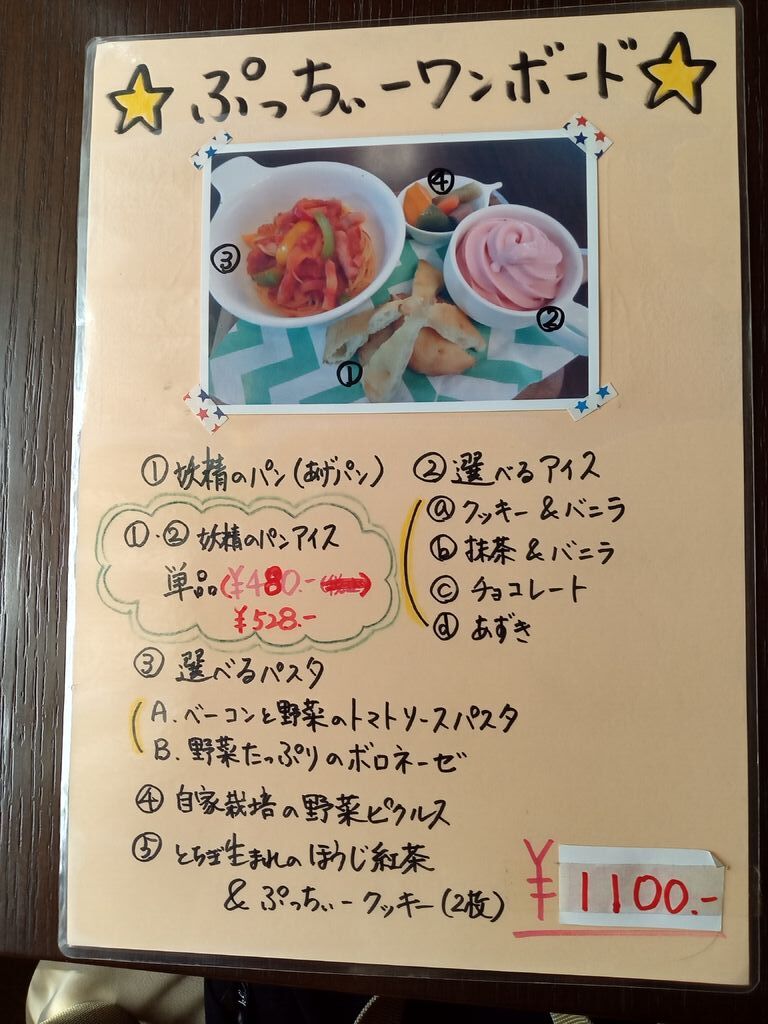 ぷっちぃーワンボード
④
③
②
①
① 妖精のパン(あげパン)
①・② 妖精のパンアイス
単品(¥480.-
¥528.-
② 選べるアイス
ⓐ クッキー & バニラ
ⓑ 抹茶 & バニラ
ⓒ チョコレート
ⓓ あずき
③ 選べるパスタ
A. ベーコンと野菜のトマトソースパスタ
B. 野菜たっぷりのボロネーゼ
④ 自家栽培の野菜ピクルス
⑤ とちぎ生まれのほうじ紅茶
& ぷっちぃークッキー(2枚)
¥1100.-